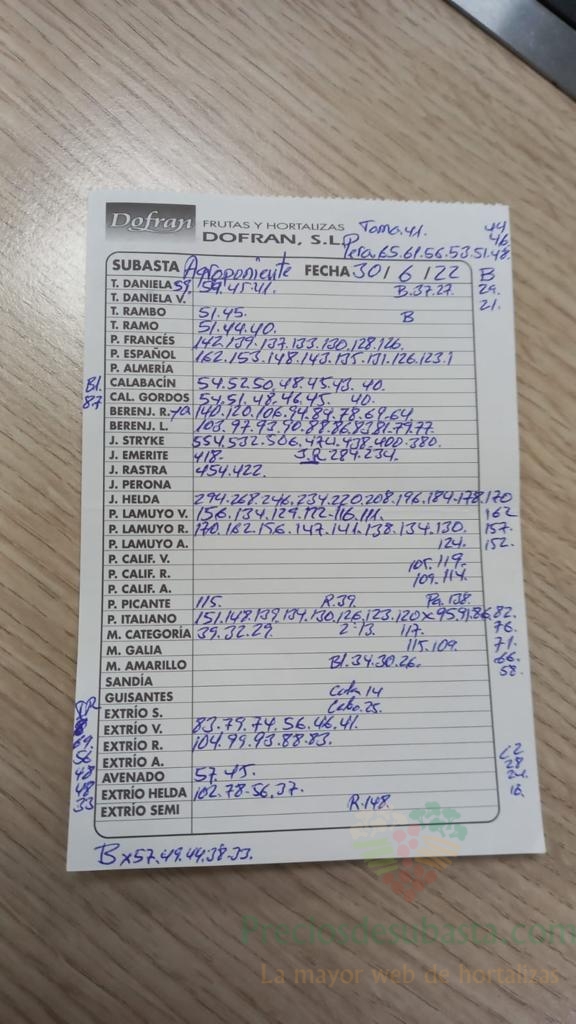 Dofran FRUTAS Y HORTALIZAS Toma.41. 44
DOFRAN, S.L. Pera.65.61.56.53.51.48. 46
SUBASTA Agroponiente FECHA 30/6/22 B
T. DANIELA 59. 59.45.41. B.37.27. 29.
T. DANIELA V. 21.
T. RAMBO 51.45. B
T. RAMO 51.44.40.
P. FRANCÉS 142.139.137.133.130.128.126.
P. ESPAÑOL 162.153.148.143.135.131.126.123.1
P. ALMERÍA
Bl. CALABACÍN 54.52.50.48.45.43. 40.
87 CAL. GORDOS 54.51.48.46.45. 40.
BERENJ. R. 140.120.106.94.84.78.69.64
BERENJ. L. 103.97.93.90.88.86.83.81.79.77
J. STRYKE 554.532.506.474.438.400.380.
J. EMERITE 418. J.R 284.234.
J. RASTRA 454.422.
J. PERONA
J. HELDA 294.268.246.234.220.208.196.184.178.170
P. LAMUYO V. 156.134.129.122.116.111. 162
P. LAMUYO R. 170.162.156.147.141.138.134.130. 157.
P. LAMUYO A. 124. 152.
P. CALIF. V. 105.119.
P. CALIF. R. 109.114.
P. CALIF. A.
P. PICANTE 115. R.39. Pa.138.
P. ITALIANO 151.148.139.134.130.126.123.120x95.91.86.82.
M. CATEGORÍA 39.32.29. 2ª13. 117. 76.
M. GALIA 115.109. 71.
M. AMARILLO Bl.34.30.26. 66.
SANDÍA 58.
GUISANTES 14
EXTRÍO S. 25.
EXTRÍO V. 83.79.74.56.46.41.
69 EXTRÍO R. 104.99.93.88.83.
56 EXTRÍO A.
48 AVENADO 57.45. 28
48 EXTRÍO HELDA 102.78.56.37. 24.
33 EXTRÍO SEMI R.148. 16.
Bx57.49.44.38.33.
Preciosdesubasta.com
La mayor web de hortalizas